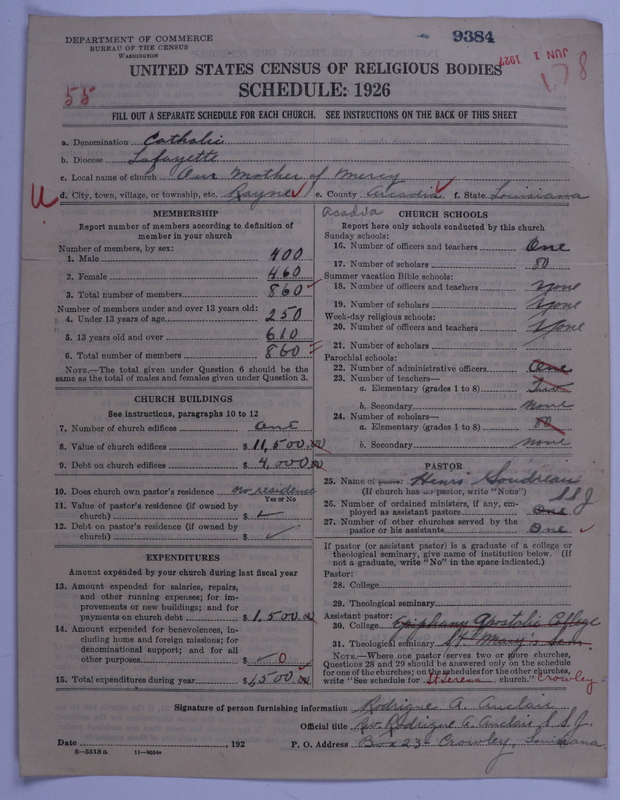 DEPARTMENT OF COMMERCE
BUREAU OF THE CENSUS
WASHINGTON
9384
JUN 1 1927
178
55
UNITED STATES CENSUS OF RELIGIOUS BODIES
SCHEDULE: 1926
FILL OUT A SEPARATE SCHEDULE FOR EACH CHURCH. SEE INSTRUCTIONS ON THE BACK OF THIS SHEET
a. Denomination Catholic
b. Diocese Lafayette
c. Local name of church Our Mother of Mercy
U
d. City, town, village, or township, etc. Rayne e. County Arcadia f. State Louisiana
Acadia
MEMBERSHIP
Report number of members according to definition of
member in your church
Number of members, by sex:
1. Male 400
2. Female 460
3. Total number of members 860
Number of members under and over 13 years old:
4. Under 13 years of age 250
5. 13 years old and over 610
6. Total number of members 860
NOTE.—The total given under Question 6 should be the
same as the total of males and females given under Question 3.
CHURCH BUILDINGS
See instructions, paragraphs 10 to 12
7. Number of church edifices One
8. Value of church edifices $ 11,500.00
9. Debt on church edifices $ 4,000.00
10. Does church own pastor's residence no residence
Yes or No
11. Value of pastor's residence (if owned by
church) $
12. Debt on pastor's residence (if owned by
church) $
EXPENDITURES
Amount expended by your church during last fiscal year
13. Amount expended for salaries, repairs,
and other running expenses; for im-
provements or new buildings; and for
payments on church debt $ 1,500.00
14. Amount expended for benevolences, in-
cluding home and foreign missions; for
denominational support; and for all
other purposes $ 0
15. Total expenditures during year $ 1,500.00
CHURCH SCHOOLS
Report here only schools conducted by this church
Sunday schools:
16. Number of officers and teachers One
17. Number of scholars 80
Summer vacation Bible schools:
18. Number of officers and teachers None
19. Number of scholars None
Week-day religious schools:
20. Number of officers and teachers None
21. Number of scholars
Parochial schools:
22. Number of administrative officers One
23. Number of teachers—
a. Elementary (grades 1 to 8) Two
b. Secondary None
24. Number of scholars—
a. Elementary (grades 1 to 8) 80
b. Secondary none
PASTOR
25. Name of pastor: Henri Goudreau
(If church has no pastor, write "None") S.S.J
26. Number of ordained ministers, if any, em-
ployed as assistant pastors One
27. Number of other churches served by the
pastor or his assistants One
If pastor (or assistant pastor) is a graduate of a college or
theological seminary, give name of institution below. (If
not a graduate, write "No" in the space indicated.)
Pastor:
28. College
29. Theological seminary
Assistant pastor:
30. College Epiphany Apostolic College
31. Theological seminary St Mary's Sem.
NOTE.—Where one pastor serves two or more churches,
Questions 28 and 29 should be answered only on the schedule
for one of the churches; on the schedules for the other churches,
write "See schedule for St Teresa church." Crowley
Signature of person furnishing information Rodrigue A. Auclair
Official title Rev. Rodrigue A. Auclair S.S.J.
Date , 192 P. O. Address Box 23 - Crowley, Louisiana
8—5318a 11—9054a